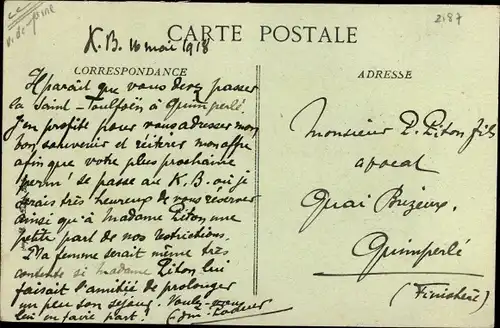 2187
CARTE POSTALE
K.B. 16 mai 1918
CORRESPONDANCE
Il parait que vous devez passer
la Saint-Toulfoin à Quimperlé
J'en profite pour vous adresser mon
bon souvenir et réitérer mon offre
afin que votre plus prochaine
perm' se passe au K.B. où je
serais très heureux de vous réserver
ainsi qu'à Madame Piton une
petite part de nos restrictions.
Ma femme serait même très
contente si Madame Piton lui
faisait l'amitié de prolonger
un peu son séjour. Voulez-vous
lui en faire part?
ADRESSE
Monsieur P. Piton fils
avocat
Quai Brizeux,
Quimperlé
(Finistère)